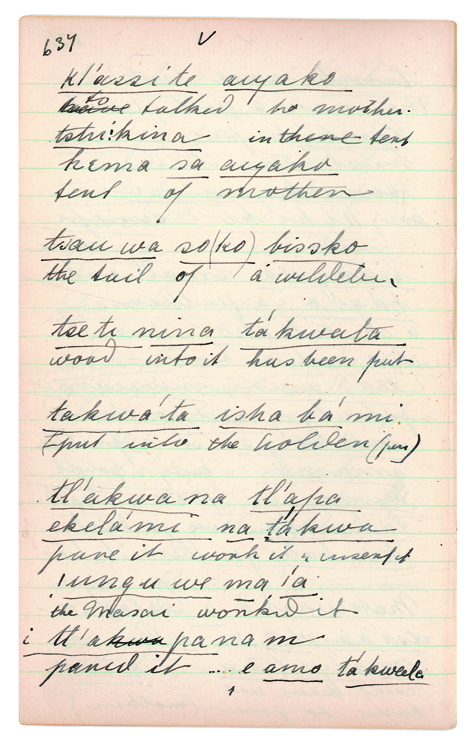 637 V
kl'assi te ayako
to talked to mother.
tstri:kina in there tent
kema sa ayako
tent of mother
tsau wa so(ko) bissko
the tail of a wildebi.
tse ti nina tákwata
wood into it has been put
takwáta isha bá mi
I put into the holder (pen)
tl'akwa na tl'apa
ekelámi na tákwa
pare it work it & insert it
!ungu we ma'a
the Masai worked it
i tl'akwa panam
pared it .... e amo tákwala